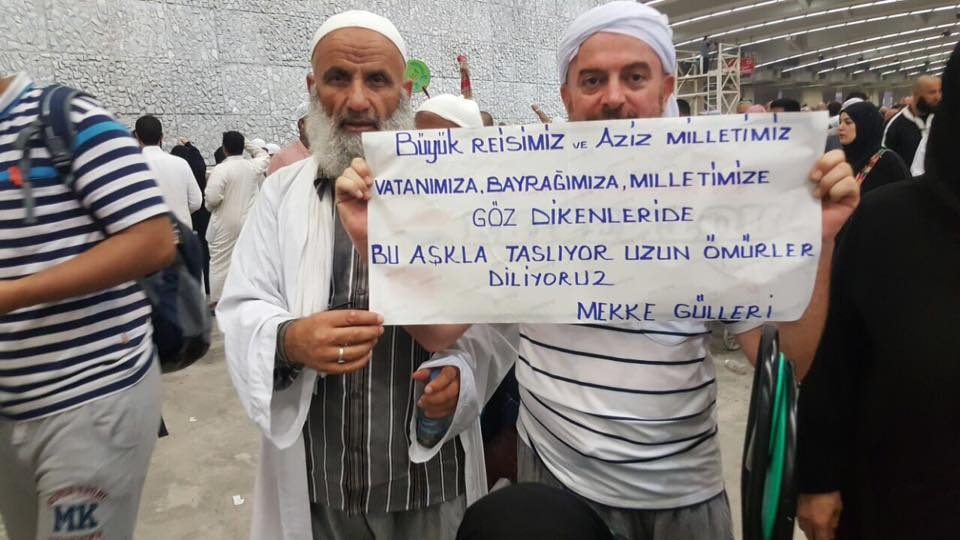 BÜYÜK REİSİMİZ VE AZİZ MİLLETİMİZ
VATANIMIZA, BAYRAĞIMIZA, MİLLETİMİZE
GÖZ DİKENLERİDE
BU AŞKLA TAŞLIYOR UZUN ÖMÜRLER
DİLİYORUZ
MEKKE GÜLLERİ
MK